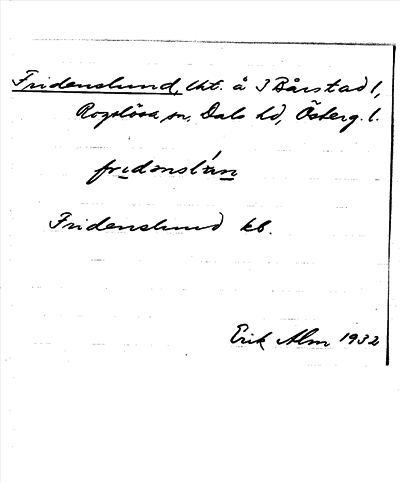 Fridenslund, lht. å 3 Bårstad 1,
Rogslösa sn, Dals hd, Österg. l.
fridənslún
Fridenslund kb.
Erik Alm 1932